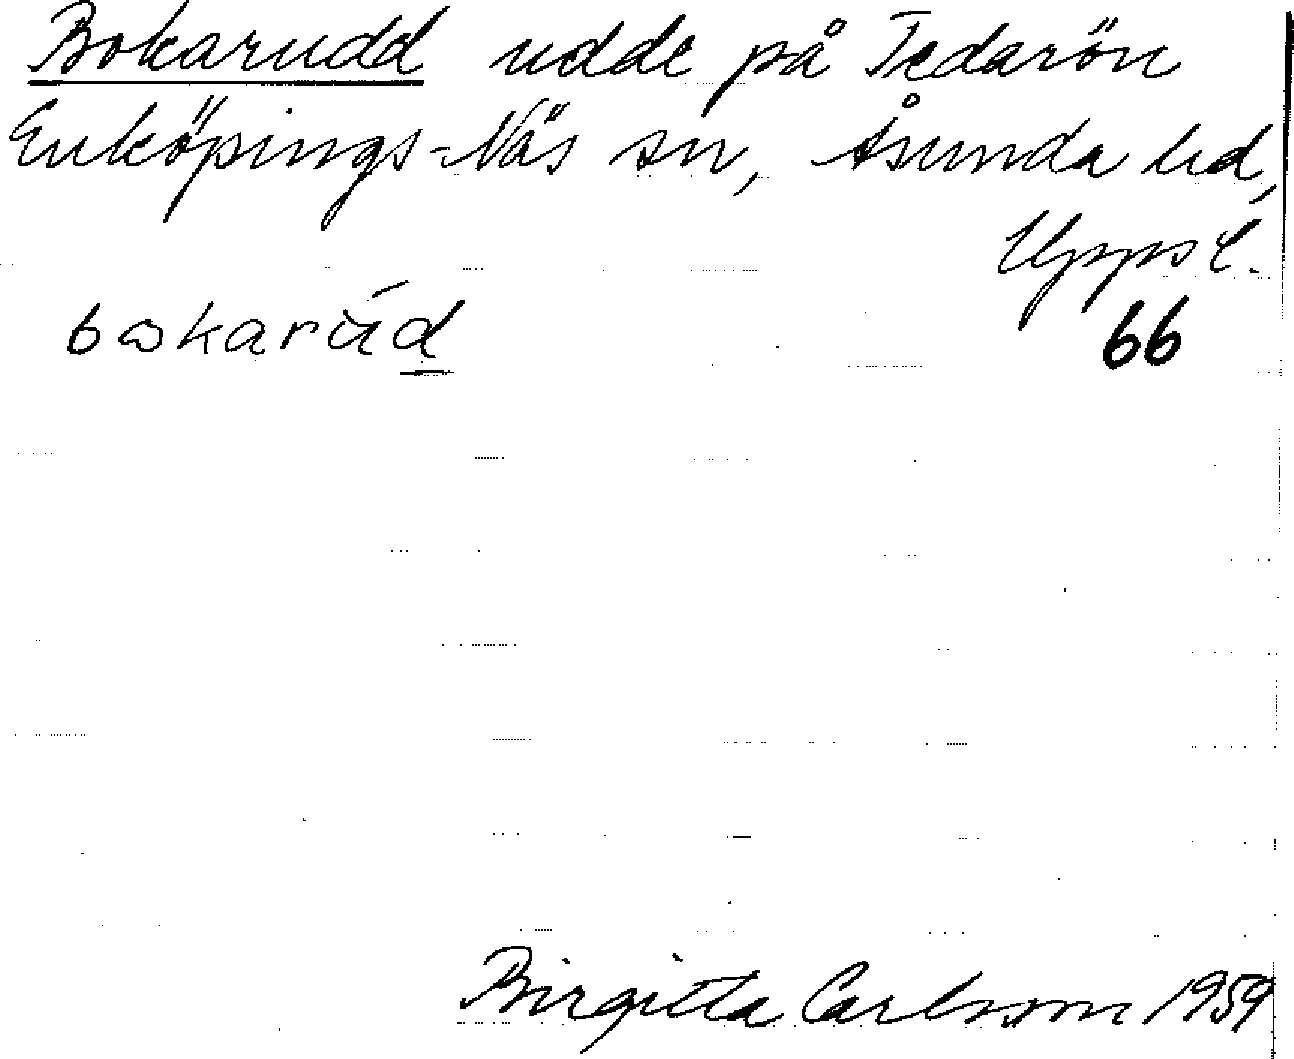 Bokarudd udde på Tedarön
Enköpings-Näs sn, Åsunda hd,
Uppsl.
bωkarúd̲
66
Birgitta Carlsson 1959